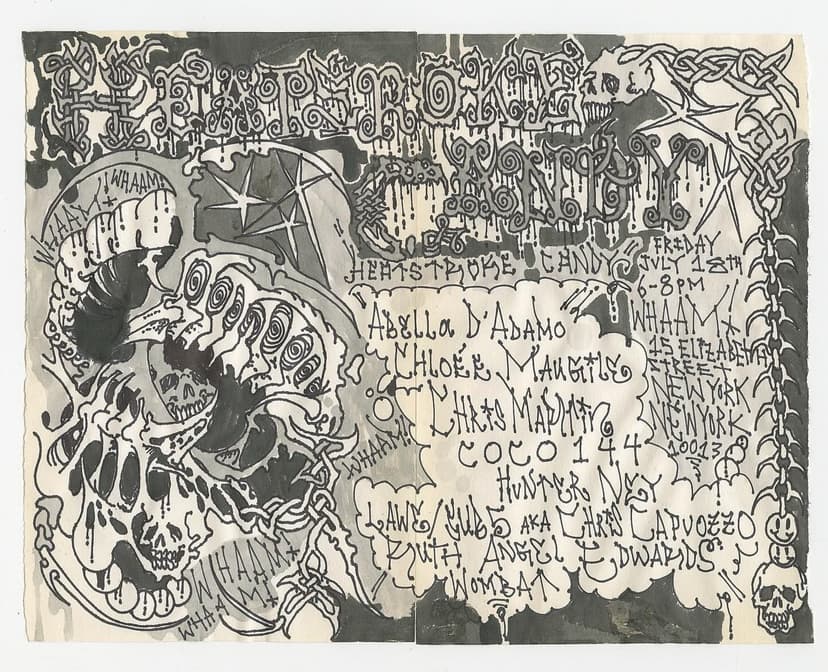 HEATSTROKE
CANDY
WHAAM!
WHAAM!
HEATSTROKE CANDY
FRIDAY
JULY 18TH
6-8PM
WHAAM!
15 ELIZABETH
STREET
NEW YORK
NEW YORK
10013
ABELLA D'ADAMO
CHLOEE MAUGILE
CHRIS MARTIN
COCO 144
HUNTER NEY
LAWE/CUBS AKA CHRIS CAPUOZZO
RUTH ANGEL EDWARDS
WOMBAT
WHAAM!
WHAAM!
WHAAM!